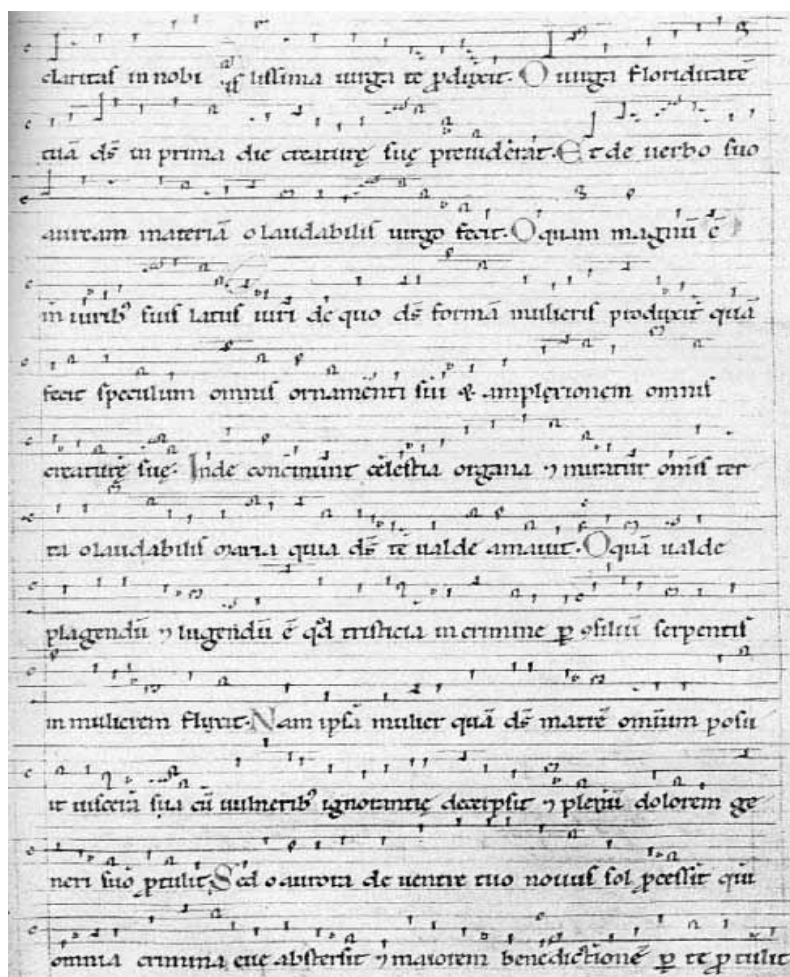 claritas in nobi lissima uirga te ꝓduxit. O uirga floriditatē
tuā ds̄ in prima die creaturę suę preuiderat. Et de uerbo suo
auream materiā o laudabilis uirgo fecit. O quam magnū ē
in uirib⁹ suis latus uiri de quo ds̄ formā mulieris produxit quā
fecit speculum omnis ornamenti sui & amplexionem omnis
creaturę suę. Inde concinunt cęlestia organa ⁊ miratur om̄is ter
ra o laudabilis maria quia ds̄ te ualde amauit. O quā ualde
plangendū ⁊ lugendū ē qd̄ tristicia in crimine ꝑ ꝯsiliū serpentis
in mulierem fluxit. Nam ipsa mulier quā ds̄ matrē omnium posu
it uiscera sua cū uulnerib⁹ ignorantię decerpsit ⁊ plenū dolorem ge
neri suo ꝓtulit. Sed o aurora de uentre tuo nouus sol ꝓcessit qui
omnia crimina eue abstersit ⁊ maiorem benedictionē ꝑ te ꝓtulit